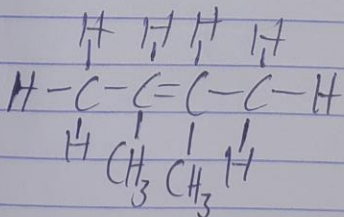 H H H H
H-C-C=C-C-H
H CH3 CH3 H